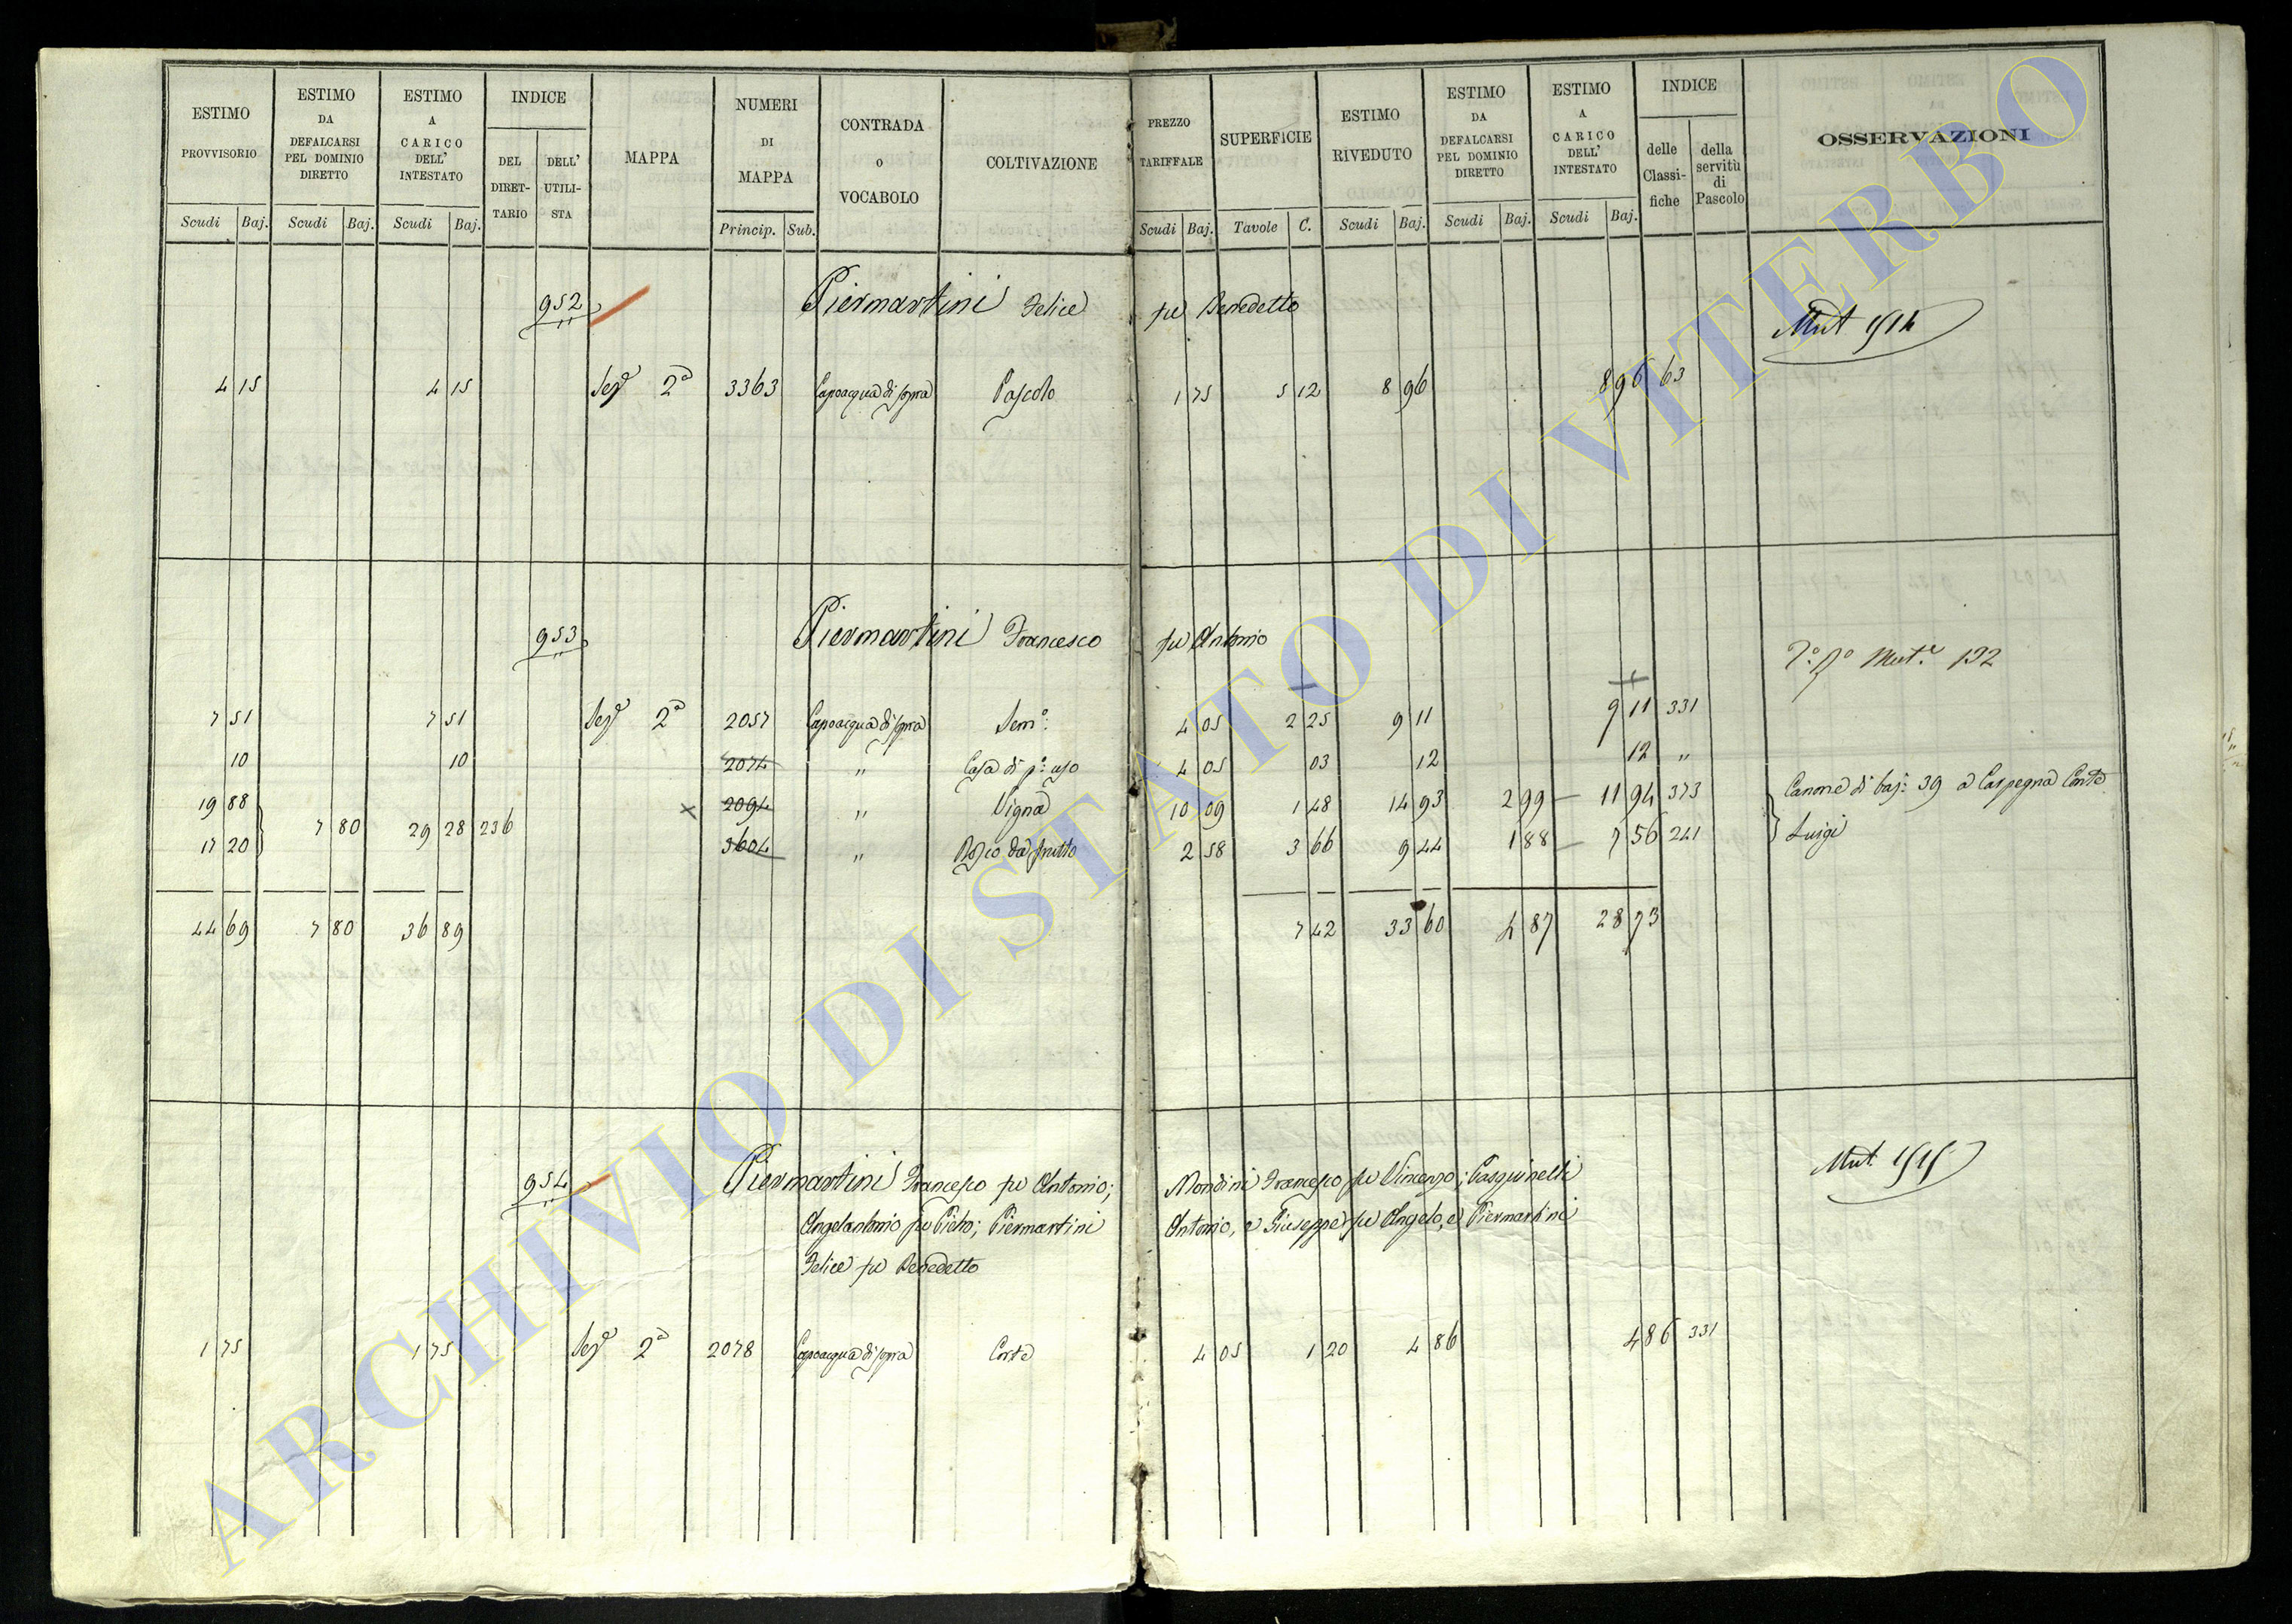 ESTIMO PROVVISORIO
ESTIMO DA DEFALCARSI PEL DOMINIO DIRETTO
ESTIMO A CARICO DELL' INTESTATO
INDICE
DEL DIRET- TARIO
DELL' UTILI- STA
MAPPA
NUMERI DI MAPPA
CONTRADA O VOCABOLO
COLTIVAZIONE
PREZZO TARIFFALE
SUPERFICIE
ESTIMO RIVEDUTO
ESTIMO DA DEFALCARSI PEL DOMINIO DIRETTO
ESTIMO A CARICO DELL' INTESTATO
INDICE
delle Classi- fiche
della servitù di Pascolo
OSSERVAZIONI
Scudi Baj. Scudi Baj. Scudi Baj. Princip. Sub. Scudi Baj. Tavole C. Scudi Baj. Scudi Baj. Scudi Baj.
952 Piermartini Felice fu Benedetto
4 15 4 15 Sez.e 2a 3363 Capoacqua di sopra Pascolo 1 75 5 12 8 96 8 96 63
953 Piermartini Francesco fu Antonio Mut.e 192
7 51 7 51 Sez.e 2a 2057 Capoacqua di sopra Sem.o: 4 05 2 25 9 11 9 11 331
10 10 2074 " Casa di p.o: uso 4 05 03 12 12 "
19 88 2094 " Vigna 10 09 1 48 14 93 2 99 11 94 373 Canone di baj: 39 a Carpegna Conte
7 80 29 28 236
17 20 3604 " Bosco da frutto 2 58 3 66 9 44 1 88 7 56 241 Luigi
44 69 7 80 36 89 7 42 33 60 4 87 28 73
954 Piermartini Francesco fu Antonio; Mondini Francesco fu Vincenzo; Pasquinelli
Angelantonio fu Pietro; Piermartini Antonio, e Giuseppe fu Angelo, e Piermartini
Felice fu Benedetto
1 75 1 75 Sez.e 2a 2078 Capoacqua di sopra Corte 4 05 1 20 4 86 4 86 331
ARCHIVIO DI STATO DI VITERBO